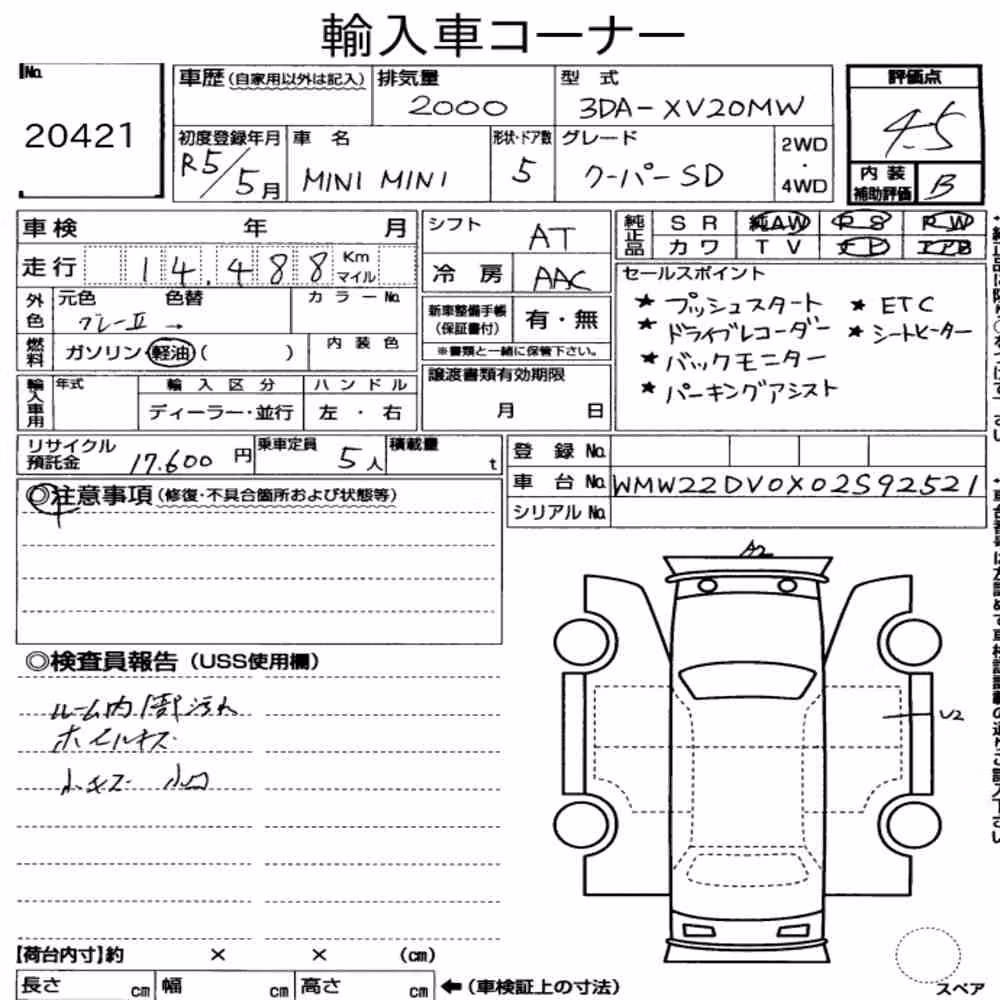 輸入車コーナー
No.
20421
車歴(自家用以外は記入)
排気量
2000
型式
3DA-XV20MW
評価点
4.5
初度登録年月
R5/5月
車名
MINI MINI
形状・ドア数
5
グレード
クーパーSD
2WD
・
4WD
内装
補助評価
B
車検 年 月
走行 14.488 Km
マイル
外色
元色 色替
グレーII →
カラーNo.
燃料
ガソリン・軽油( )
内装色
輸入車用
年式
輸入区分
ディーラー・並行
ハンドル
左・右
シフト
AT
冷房
AAC
新車整備手帳
(保証書付)
有・無
※書類と一緒に保管下さい。
譲渡書類有効期限
月 日
純正品
SR 純AW PS PW
カワ TV ナビ エアB
セールスポイント
★ プッシュスタート ★ ETC
★ ドライブレコーダー ★ シートヒーター
★ バックモニター
★ パーキングアシスト
リサイクル
預託金
17.600 円
乗車定員
5人
積載量
t
登録No.
車台No. WMW22DV0X02S92521
シリアルNo.
◎注意事項(修復・不具合箇所および状態等)
◎検査員報告(USS使用欄)
ルーム内1部汚れ
ホイルキズ
小キズ 小凹
A2
U2
【荷台内寸】約 × × (cm)
長さ cm 幅 cm 高さ cm ←(車検証上の寸法)
スペア